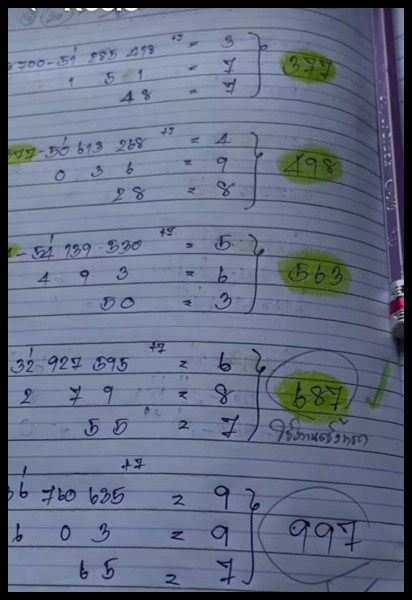 700-51 285 498 +7 = 3
1 5 1 = 7
48 = 7
377
777-50 613 268 +7 = 4
0 3 6 = 9
28 = 8
498
-54 139 530 +7 = 5
4 9 3 = 6
50 = 3
563
32 927 595 +7 = 6
2 7 9 = 8
55 = 7
687
36 760 635 +7 = 9
6 0 3 = 9
65 = 7
997